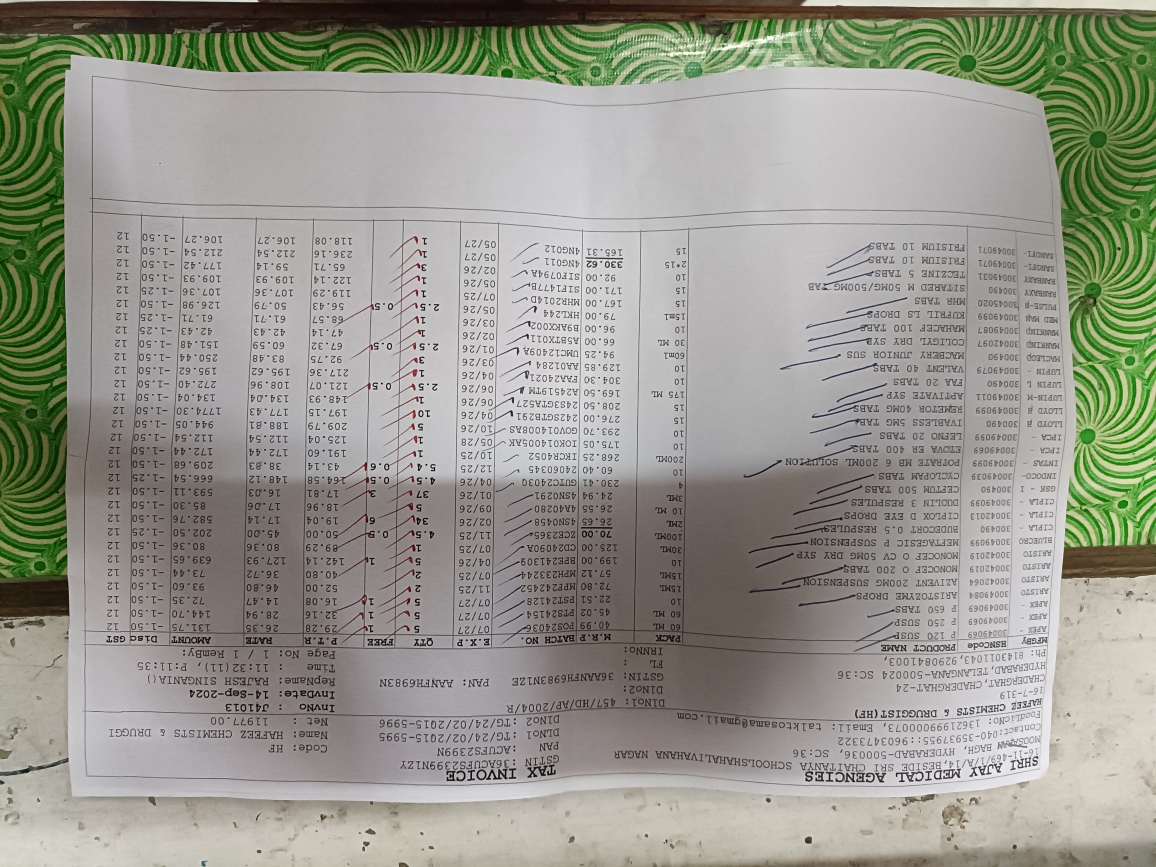 SHRI AJAY MEDICAL AGENCIES TAX INVOICE
16-11-469/1/A/14,BESIDE SRI CHAITANYA SCHOOLSHALIVAHANA NAGAR GSTIN :36ACUFS2399N1ZY
MOOSARAM BAGH, HYDERABAD-500036, SC:36 PAN :ACUFS2399N Code: HF
Contact:040-35937955::9603473322 DlNO1 :TG/24/02/2015-5995 Name: HAFEEZ CHEMISTS & DRUGGI
FoodLicNo: 13621999000073, Email: talktosama@gmail.com DlNO2 :TG/24/02/2015-5996 Net : 11977.00
HAFEEZ CHEMISTS & DRUGGIST(HF) DlNo1: 457/HD/AP/2004/R InvNo : J41013
16-7-319 DlNo2: InvDate: 14-Sep-2024
CHADERGHAT, CHADERGHAT-24 GSTIN: 36AANFH6983N1ZE PAN: AANFH6983N RepName: RAJESH SINGANIA()
HYDERABAD, TELANGANA-500024 SC:36 FL : Time : 11:32(11), P:11:35
Ph: 8143011043,9290841003, IRNNo: Page No: 1 / 1 RemBy:
MFGBY HSNcode PRODUCT NAME PACK M.R.P BATCH NO. E.X.P QTY FREE P.T.R RATE AMOUNT Disc GST
APEX - 30049069 P 120 SUSP 60 ML 40.99 PG0S24036 07/27 5 1 29.28 26.35 131.75 -1.50 12
APEX - 30049069 P 250 SUSP 60 ML 46.02 PTSS24154 07/27 5 1 32.16 28.94 144.70 -1.50 12
APEX - 30049069 P 650 TABS 10 22.51 PST24128 07/27 5 1 16.08 14.47 72.35 -1.50 12
ARISTO 30049084 ARISTOZYME DROPS 15ML 72.80 MPF242462 11/25 2 52.00 46.80 93.60 -1.50 12
ARISTO 30042064 AZIVENT 200MG SUSPENSION 15ML 57.12 MPH233244 07/25 2 40.80 36.72 73.44 -1.50 12
ARISTO 30042019 MONOCEF O 200 TABS 10 199.00 BPE241309 04/26 5 142.14 127.93 639.65 -1.50 12
ARISTO 30042019 MONOCEF O CV 50MG DRY SYP 30ML 125.00 CD2409A 07/25 1 89.29 80.36 80.36 -1.50 12
BLUECRO 30049099 METAGESIC P SUSPENSION 100ML 70.00 ECE2365 11/25 4.5 0.5 50.00 45.00 202.50 -1.25 12
CIPLA - 300490 BUDECORT 0.5 RESPULES 2ML 26.65 4SN0458 02/26 34 6 19.04 17.14 582.76 -1.50 12
CIPLA - 30042013 CIPLOX D EYE DROPS 10 ML 26.55 4A40280 09/26 5 18.96 17.06 85.30 -1.50 12
CIPLA - 30049099 DUOLIN 3 RESPULES 3ML 24.94 4SN0291 01/26 37 3 17.81 16.03 593.11 -1.50 12
GSK - I 300490 CEFTUM 500 TABS 4 230.41 GUTC24030 04/26 4.5 0.5 164.58 148.12 666.54 -1.50 12
INDOCO- 30049039 CYCLOPAM TABS 10 60.40 24060345 12/25 5.4 0.6 43.14 38.83 209.68 -1.50 12
INTAS - 30049099 POTRATE MB 6 200ML SOLUTION 200ML 268.25 IKCR4052 10/25 1 191.60 172.44 172.44 -1.50 12
IPCA - 30049069 ETOVA ER 400 TABS 10 175.05 IOK014005AK 05/28 1 125.04 112.54 112.54 -1.50 12
IPCA - 30049099 LEFNO 20 TABS 10 293.70 GOV014008AS 10/26 5 209.79 188.81 944.05 -1.50 12
LLOYD H 300490 IVABLESS 5MG TABS 15 276.00 242SGTB291 04/26 10 197.15 177.43 1774.30 -1.50 12
LLOYD H 30049099 REMETOR 40MG TABS 15 208.50 2483GTA527 06/26 1 148.93 134.04 134.04 -1.50 12
LUPIN-M 30049011 APTIVATE SYP 175 ML 169.50 A24519TM 06/26 2.5 0.5 121.07 108.96 272.40 -1.50 12
LUPIN L 300490 FAA 20 TABS 10 304.30 FAA24021 04/26 1 217.36 195.62 195.62 -1.50 12
LUPIN - 30049079 VALENT 40 TABS 10 129.85 UA01284 03/26 3 92.75 83.48 250.44 -1.50 12
MACLEOP 300490 MACBERY JUNIOR SUS 60ml 94.25 UMC12409A 01/26 2.5 0.5 67.32 60.59 151.48 -1.50 12
MANKIND 30042097 COLIGYL DRY SYP 30 ML 66.00 A7SBT0011 02/26 1 47.14 42.43 42.43 -1.25 12
MANKIND 30049087 MAHACEF 100 TABS 10 96.00 B9AFX002 03/26 1 68.57 61.71 61.71 -1.25 12
MED MAN 30049099 KUFRIL LS DROPS 15ml 79.00 HKL244 05/26 2.5 0.5 56.43 50.79 126.98 -1.50 12
PULSE-H 30045020 MHR TABS 15 167.00 MHR201D4 07/25 1 119.29 107.36 107.36 -1.25 12
RANBAXY 300490 SITARED M 50MG/500MG TAB 15 171.00 SIF1477B 05/26 1 122.14 109.93 109.93 -1.50 12
RANBAXY 30049031 TECZINE 5 TABS 10 92.00 SIF0794A 02/26 3 65.71 59.14 177.42 -1.50 12
SANOFI- 30049071 FRISIUM 10 TABS 2*15 330.62 4NG011 05/27 1 236.16 212.54 212.54 -1.50 12
SANOFI- 30049071 FRISIUM 10 TABS 15 165.31 4NG012 05/27 1 118.08 106.27 106.27 -1.50 12